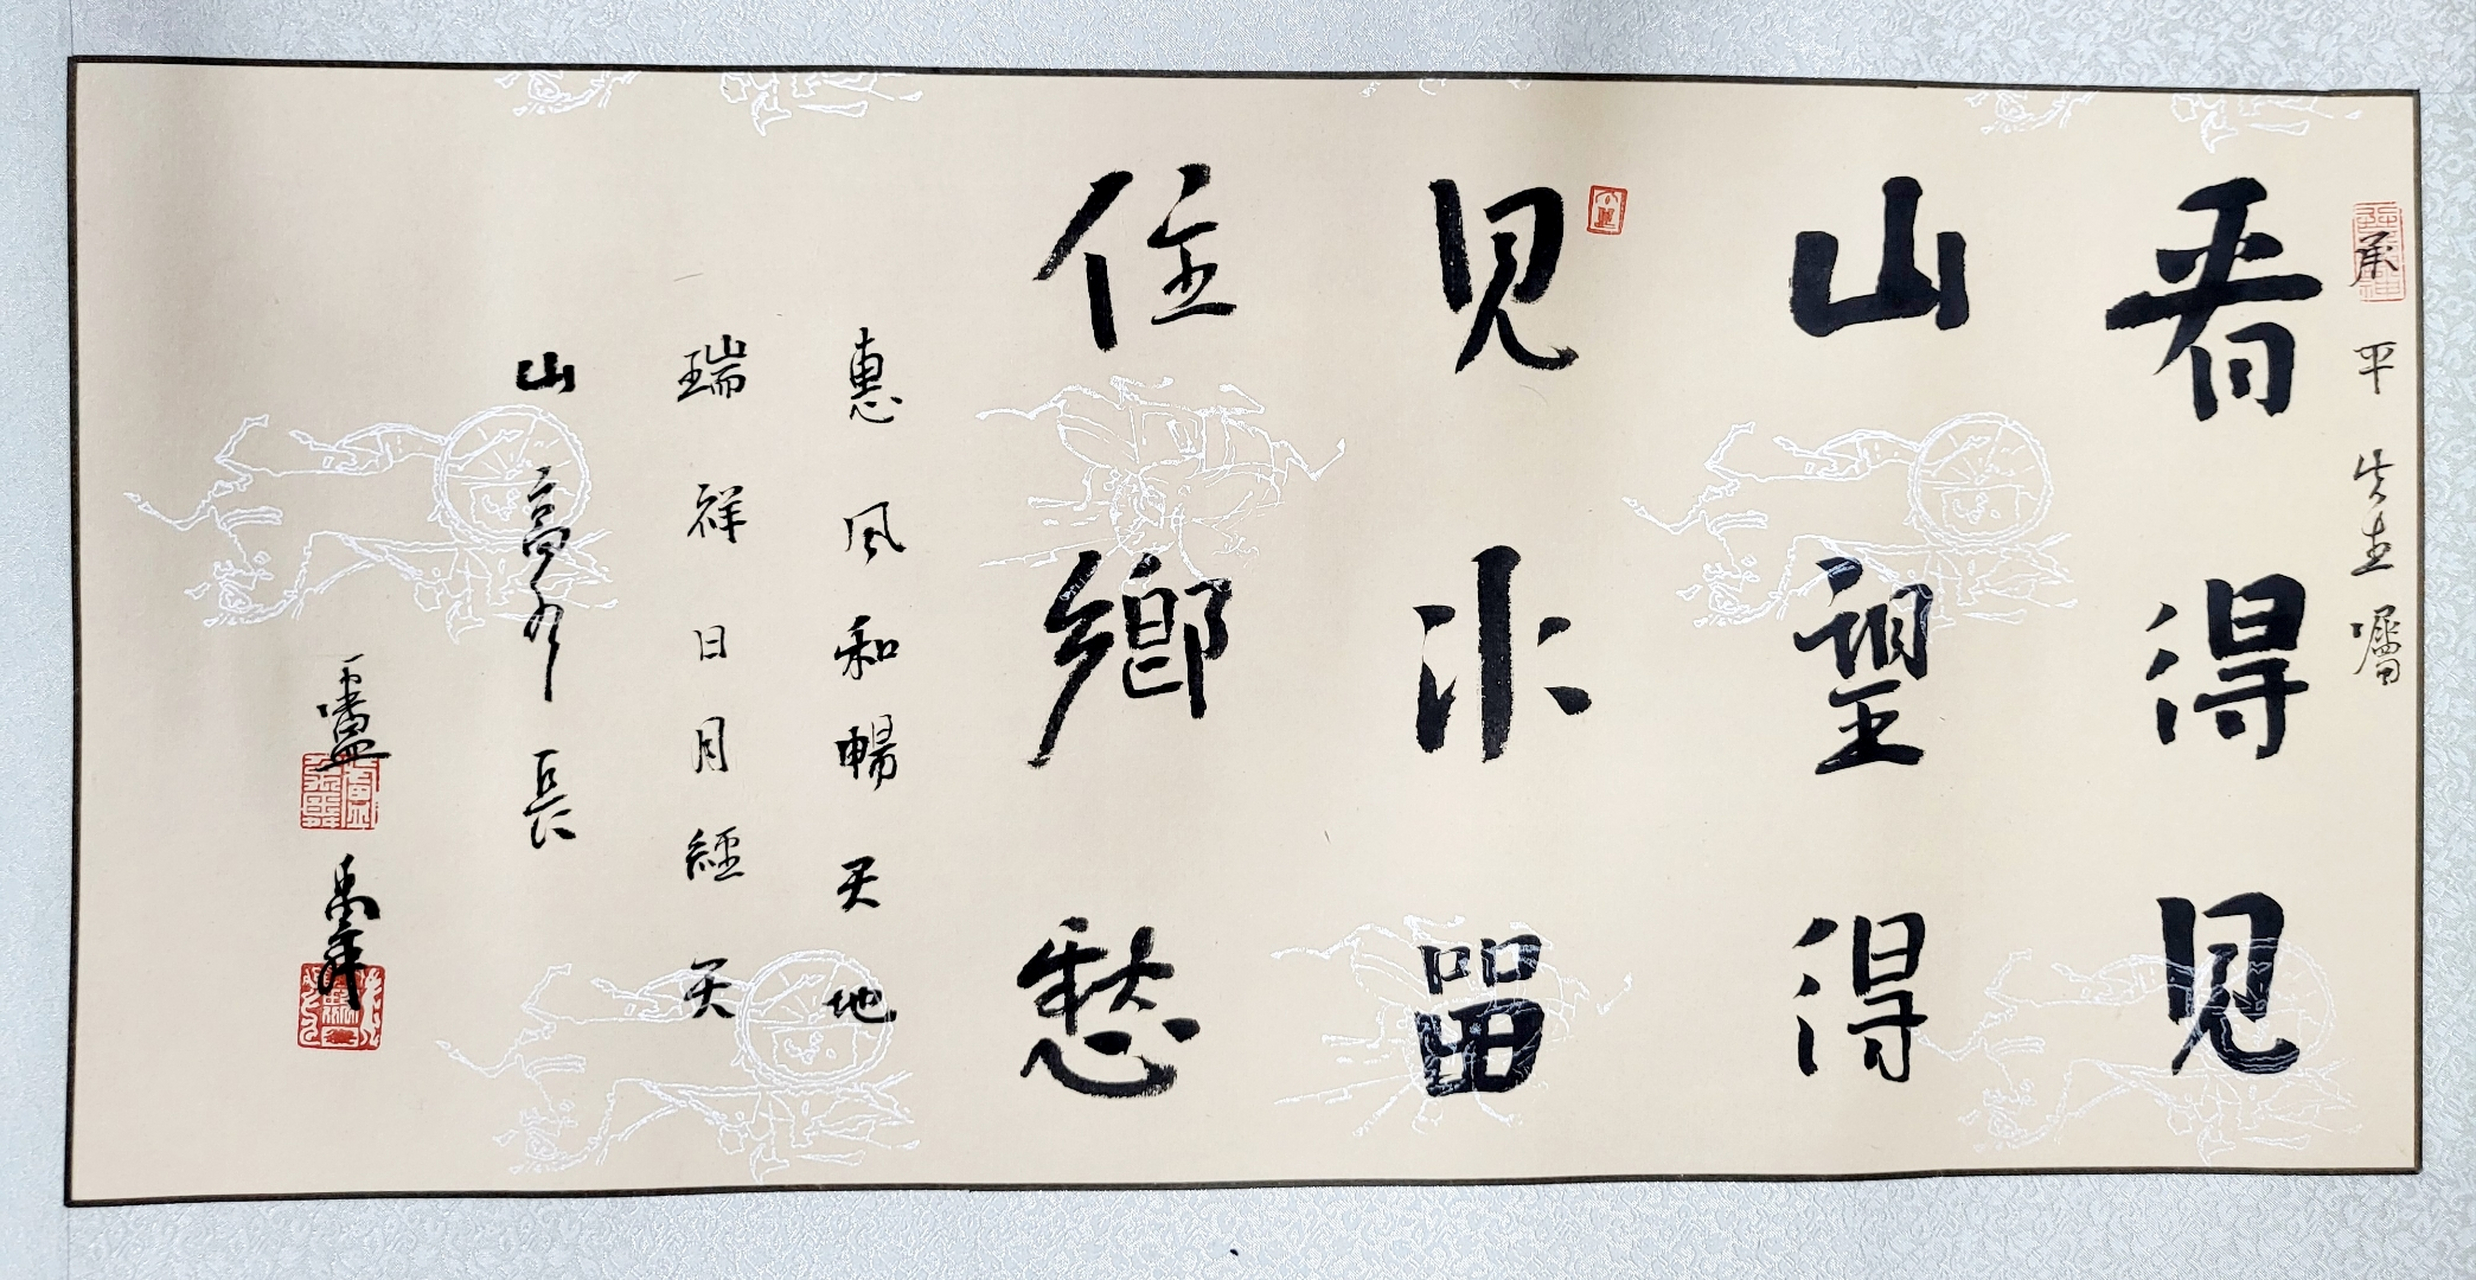 承平先生囑
看得見
山望得
見水留
住鄉愁
惠風和暢天地
瑞祥日月經天
山高水長
禹年